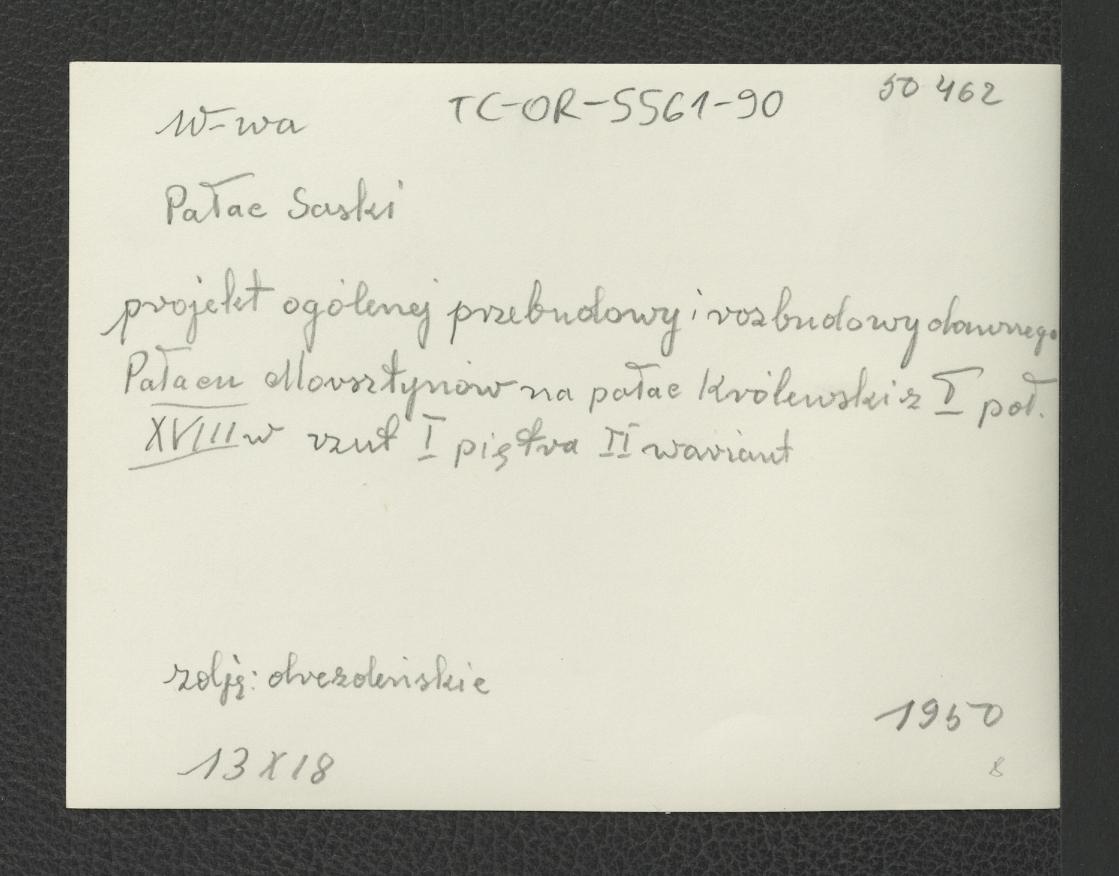 W-wa TC-OR-5561-90 50 462
Pałac Saski
projekt ogólenej przebudowy i rozbudowy dawnego
Pałacu Morsztynów na pałac Królewski z I poł.
XVIII w rzut I piętra II wariant
zdję: drezdeńskie
1950
13 X 18
8